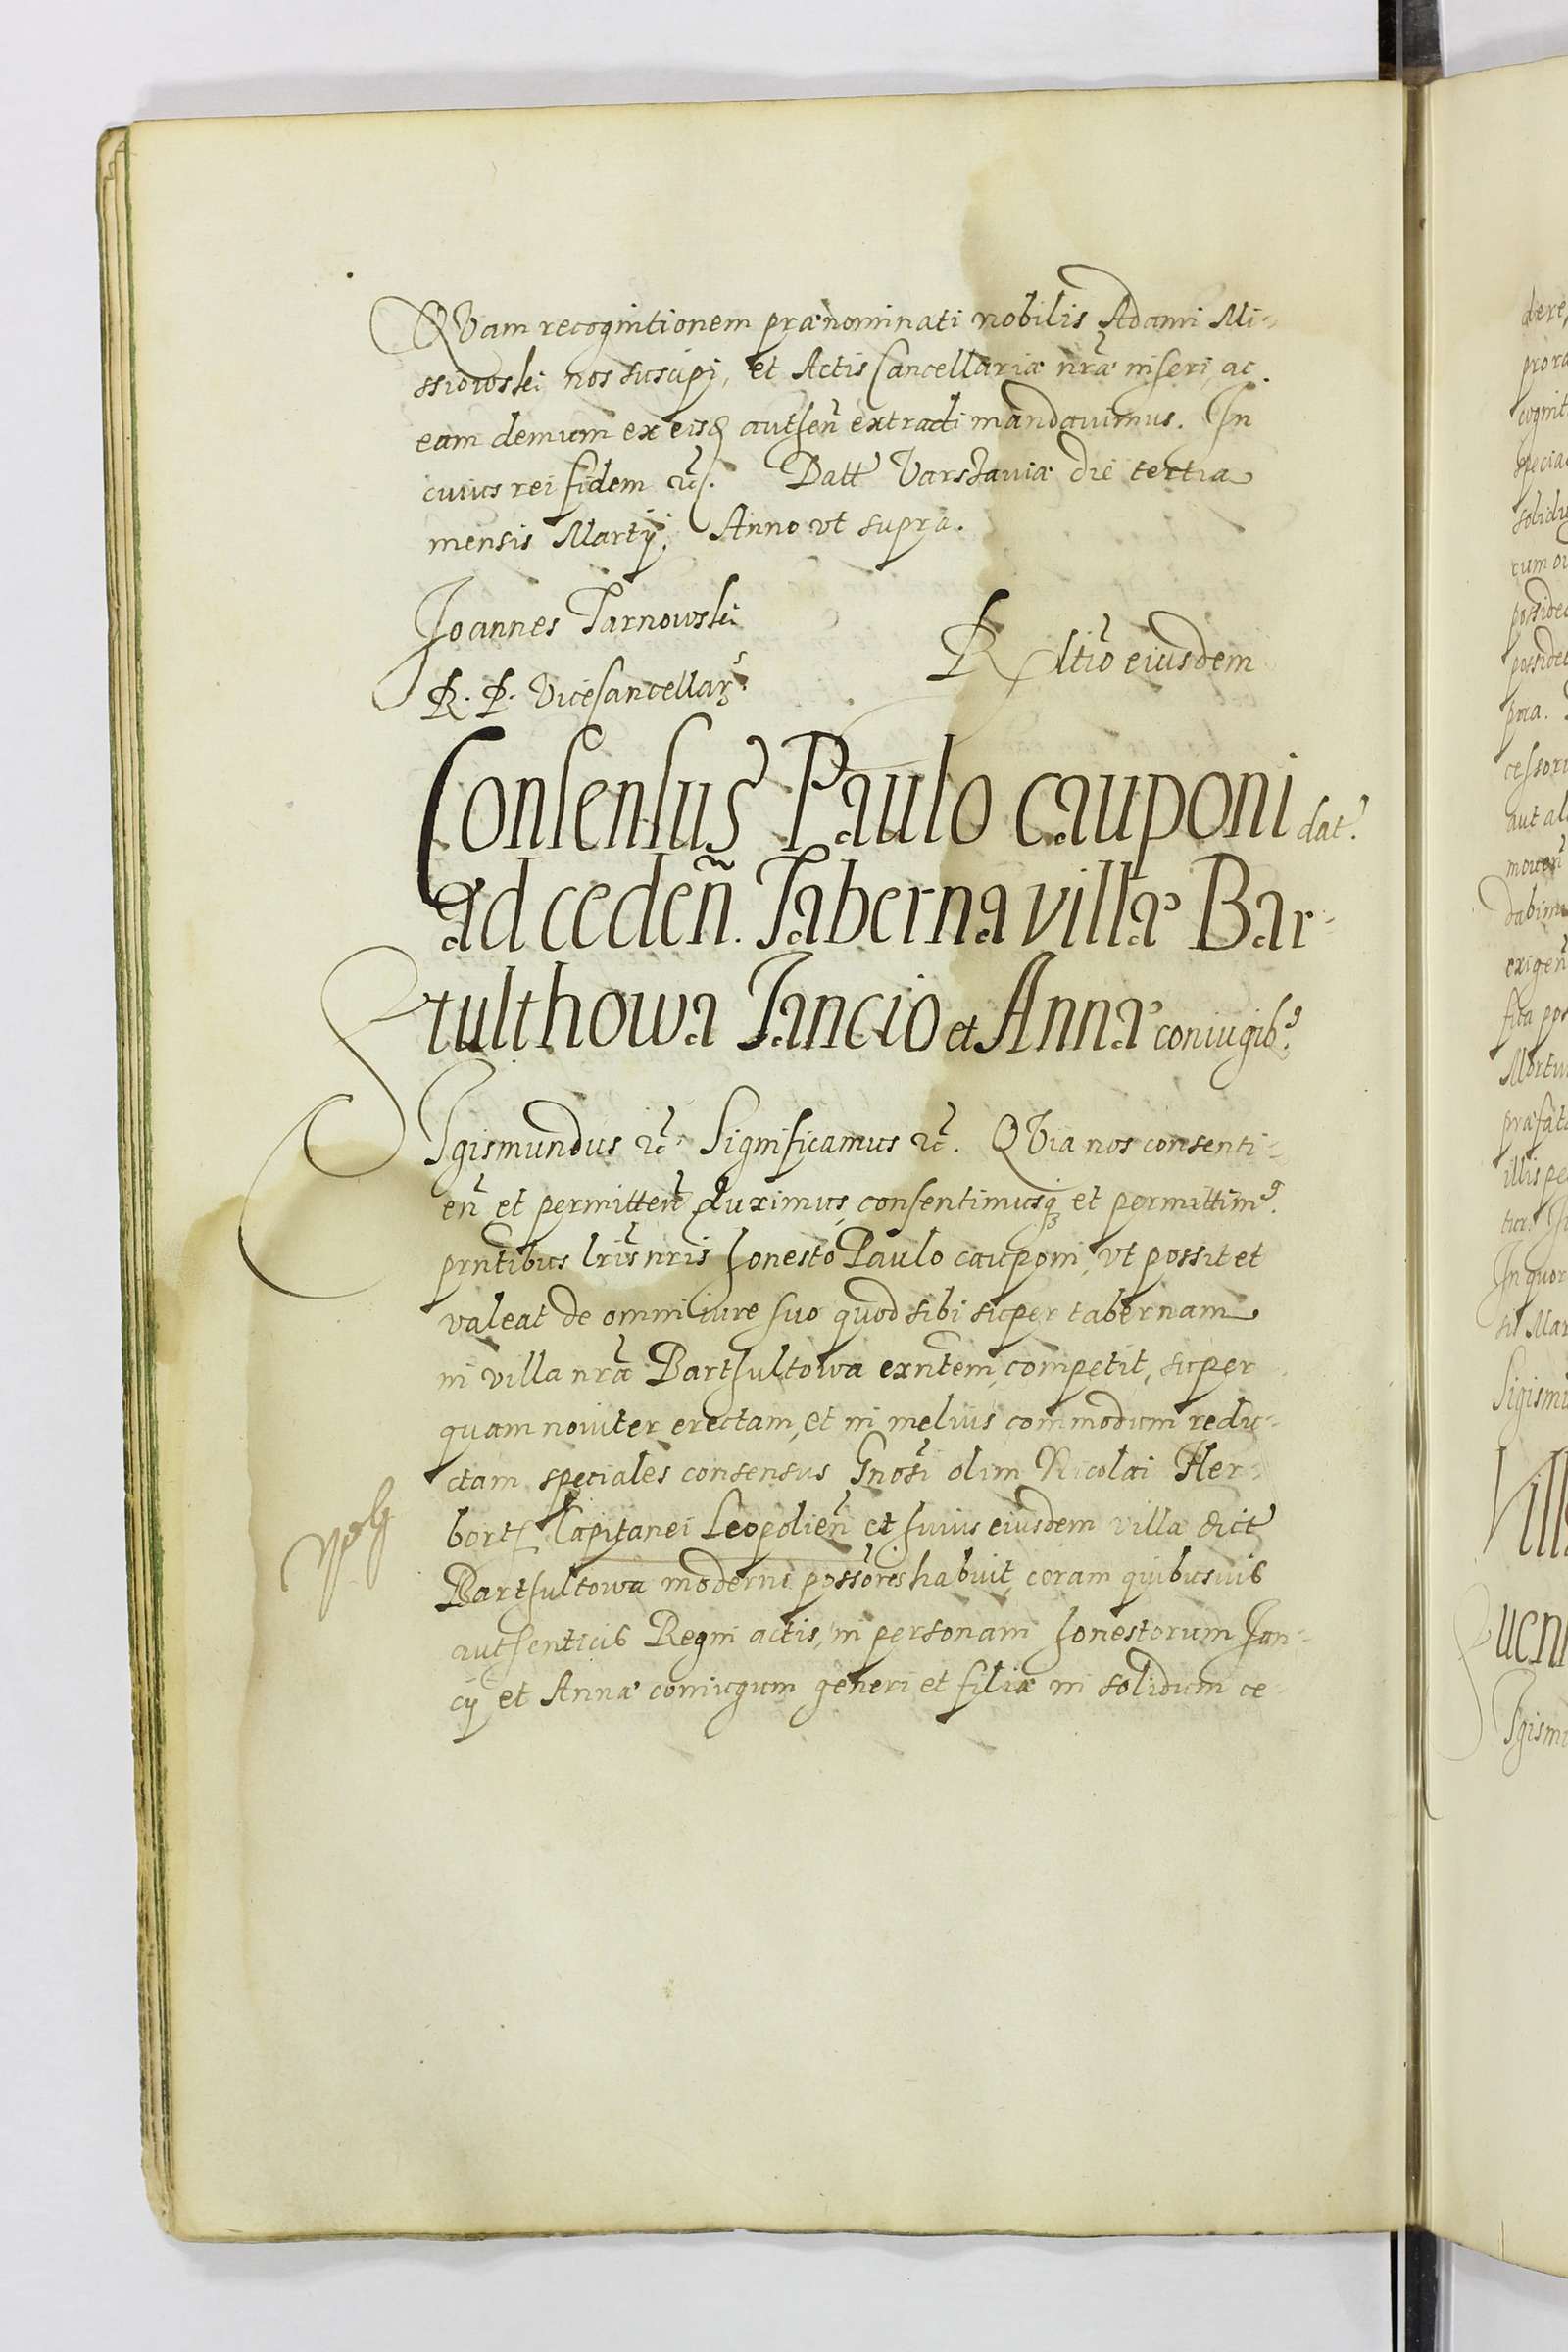 QVam recognitionem prænominati nobilis Adami Mi-
ssiowski nos suscipi, et Actis Cancellariæ nræ inseri, ac
eam demum ex eisd authen extradi mandavimus. In
cuius rei fidem etc. Datt Varsaviæ die tertia
mensis Martij, Anno vt supra.
Joannes Tarnowski
R. P. Vicecancellar:
R ltio eiusdem
Consensus Paulo cauponi dat.
ad ceden. Taberna villæ Bar-
tulthowa Iancio et Annæ coniugib9.
SIgismundus etc. Significamus etc. QVia nos consenti-
en et permitten duximus, consentimusq3 et permittim9
prntibus lris nris honesto Paulo cauponi, vt possit et
valeat de omni iure suo quod sibi super tabernam
in villa nra Barthultowa exntem, competit, super
quam noviter erectam, et in melius commodum redu-
ctam, speciales consensus Gnosi olim Nicolai Her-
borth Capitanei Leopolien et huius eiusdem villæ dict
Barthultowa moderni possoris habuit, coram quibusuis
authenticis Regni actis, in personam honestorum Ian-
cij et Annæ coniugum generi et filiæ in solidum ce-
dere,
prora
cognit
specia
solidu
cum o
posside
posside
pria.
cessor
aut al
moven
dabim
exigen
fita pos
Mortu
præfat
illis pe
In quor
sit Mar
Sigism
Vill
uen
Igism